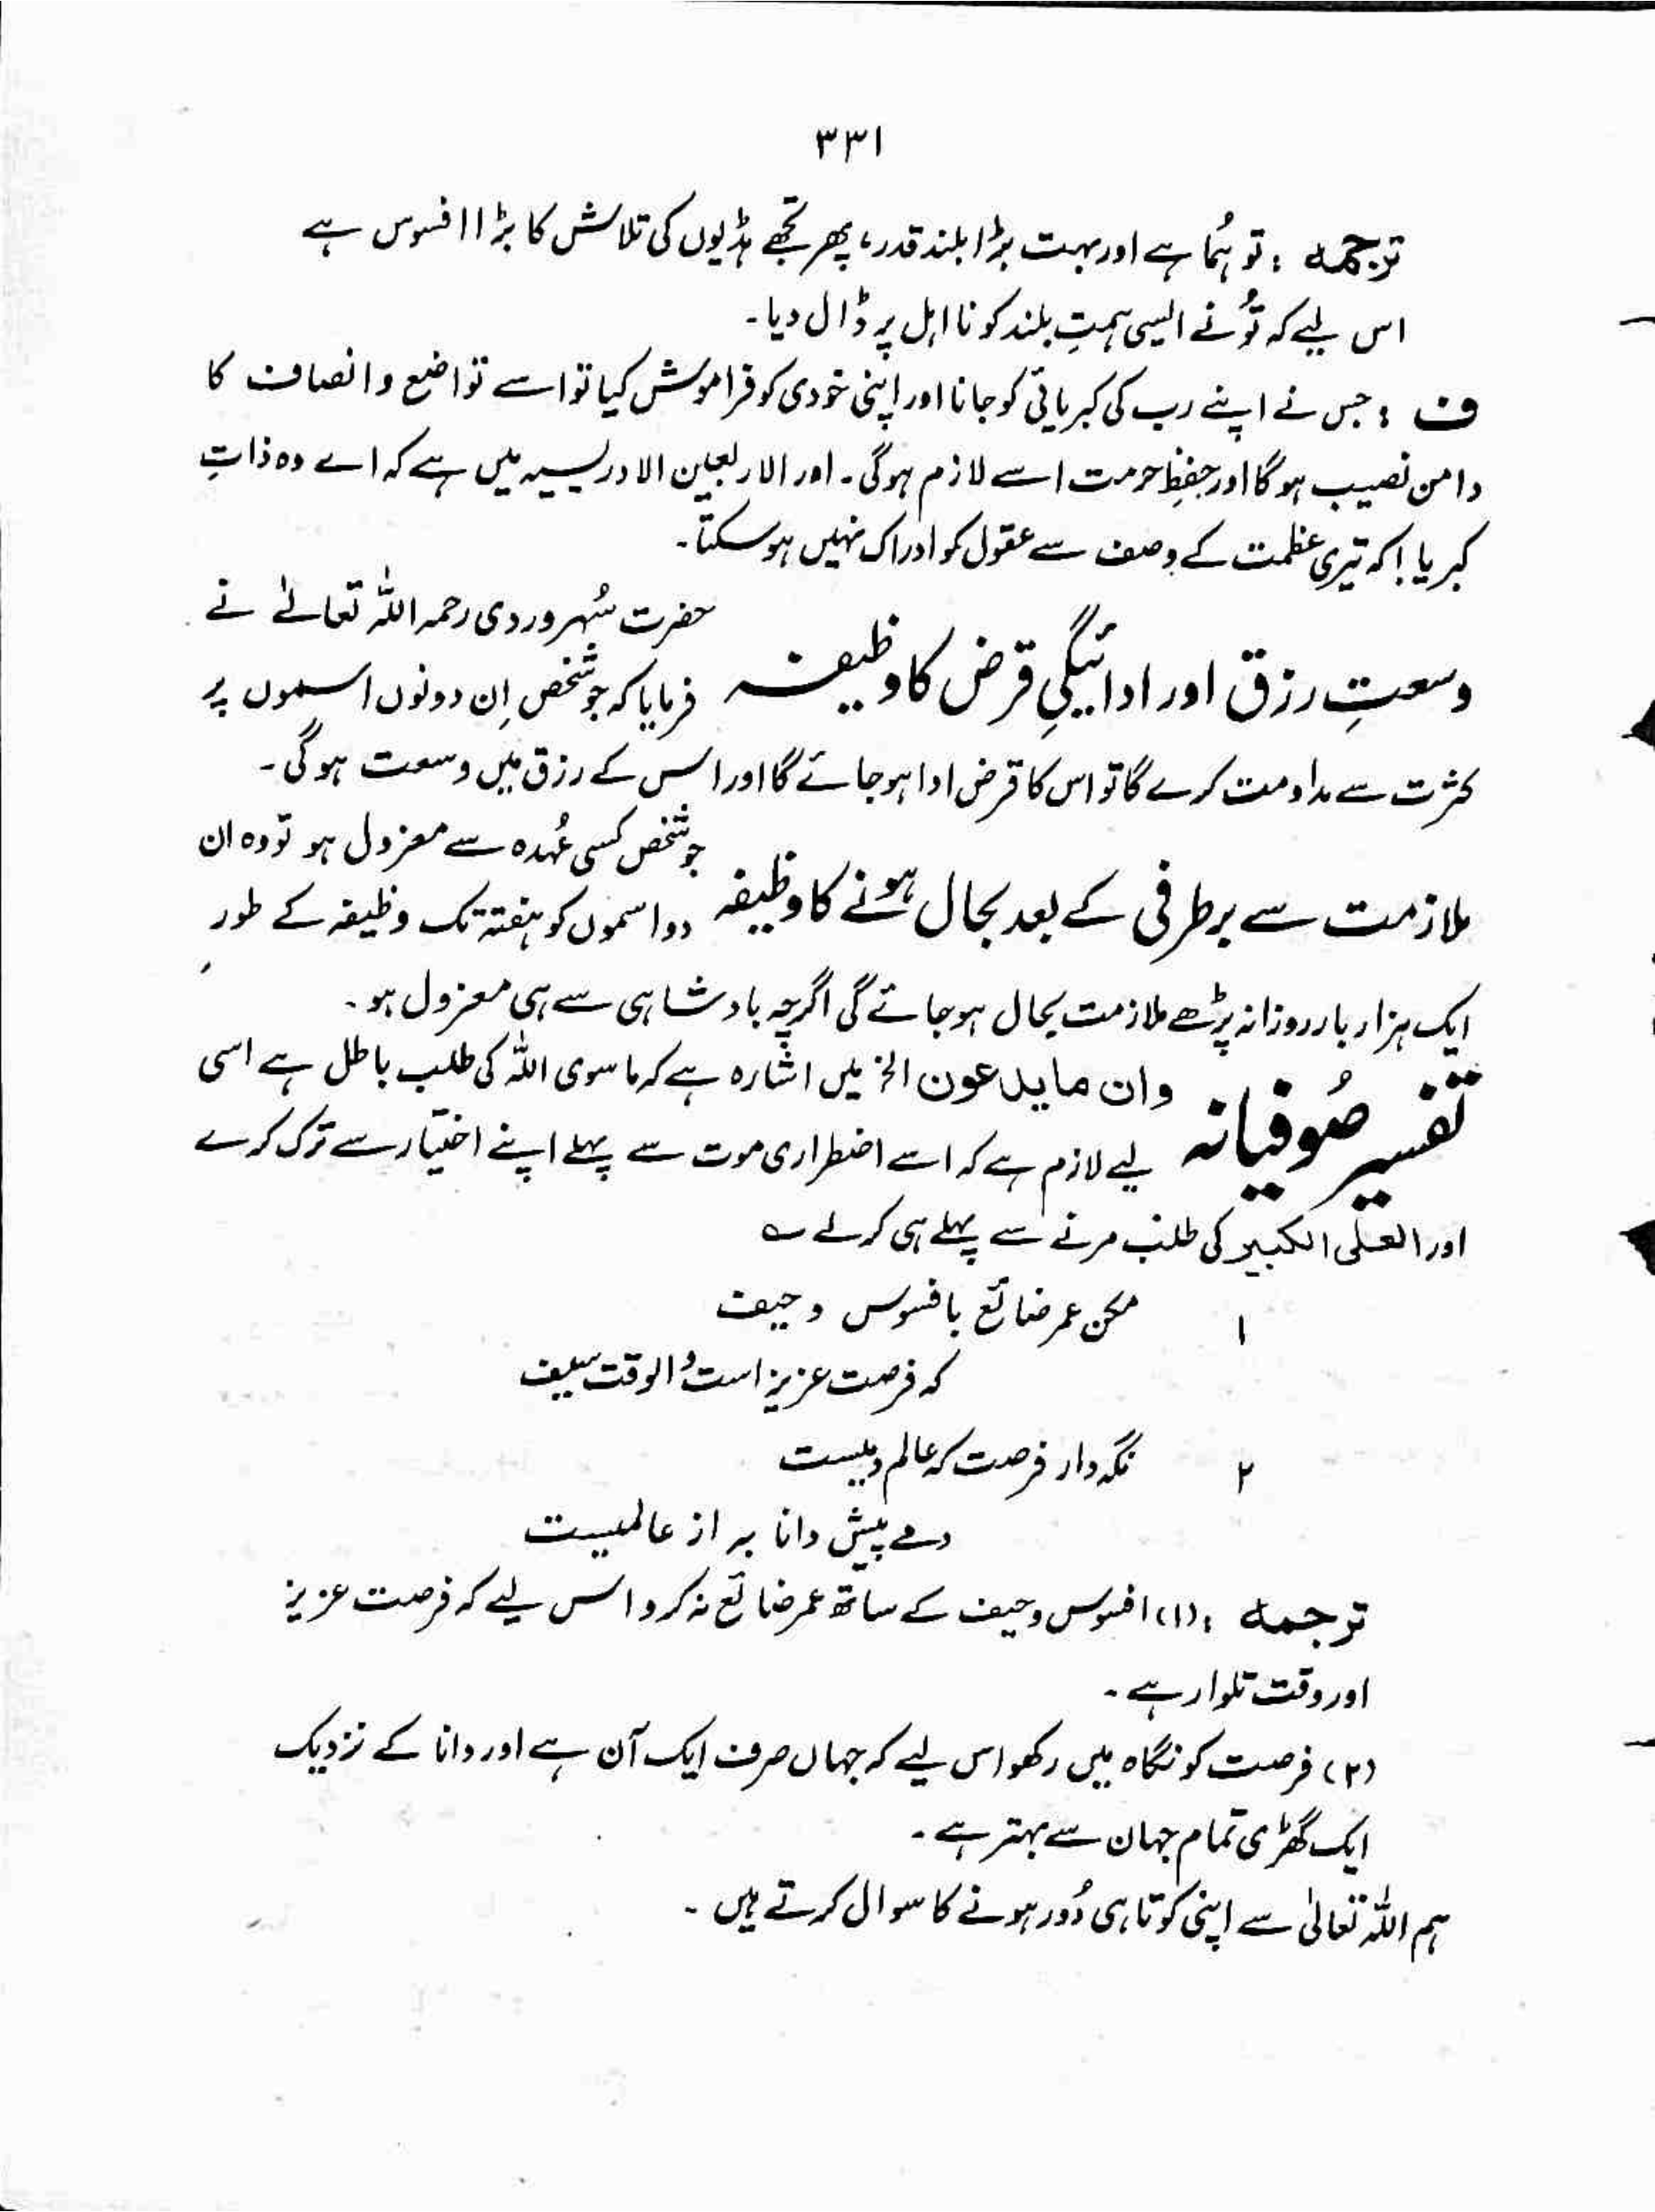 ۳۳۱
ترجمہ : تو ہُما ہے اور بہت بڑا بلند قدر، پھر تجھے ہڈیوں کی تلاش کا بڑا افسوس ہے
اس لیے کہ تُو نے ایسی ہمتِ بلند کو نااہل پر ڈال دیا۔
ف : جس نے اپنے رب کی کبریائی کو جانا اور اپنی خودی کو فراموش کیا تو اسے تواضع و انصاف کا
دامن نصیب ہوگا اور حفظِ حرمت اسے لازم ہوگی۔ اور الاربعین الادریسیہ میں ہے کہ اے وہ ذاتِ
کبریا! کہ تیری عظمت کے وصف سے عقول کو ادراک نہیں ہوسکتا۔
وسعتِ رزق اور ادائیگیِ قرض کا وظیفہ
حضرت سُہروردی رحمہ اللہ تعالیٰ نے
فرمایا کہ جو شخص اِن دونوں اسموں پر
کثرت سے مداومت کرے گا تو اس کا قرض ادا ہوجائے گا اور اس کے رزق میں وسعت ہوگی۔
ملازمت سے برطرفی کے بعد بحال ہونے کا وظیفہ
جو شخص کسی عُہدہ سے معزول ہو تو وہ ان
دو اسموں کو ہفتہ تک وظیفہ کے طور
ایک ہزار بار روزانہ پڑھے ملازمت بحال ہوجائے گی اگرچہ بادشاہی سے ہی معزول ہو۔
تفسیر صُوفیانہ
وان ما یدعون الخ میں اشارہ ہے کہ ماسوی اللہ کی طلب باطل ہے اسی
لیے لازم ہے کہ اسے اضطراری موت سے پہلے اپنے اختیار سے ترک کرے
اور العلی الکبیر کی طلب مرنے سے پہلے ہی کرلے ؎
۱ مکن عمر ضائع بافسوس و حیف
کہ فرصت عزیز است و الوقت سیف
۲ نگہ دار فرصت کہ عالم دمیست
دمے پیش دانا بہ از عالمیست
ترجمہ : (۱) افسوس و حیف کے ساتھ عمر ضائع نہ کرو اس لیے کہ فرصت عزیز
اور وقت تلوار ہے۔
(۲) فرصت کو نگاہ میں رکھو اس لیے کہ جہاں صرف ایک آن ہے اور دانا کے نزدیک
ایک گھڑی تمام جہان سے بہتر ہے۔
ہم اللہ تعالیٰ سے اپنی کوتاہی دُور ہونے کا سوال کرتے ہیں۔